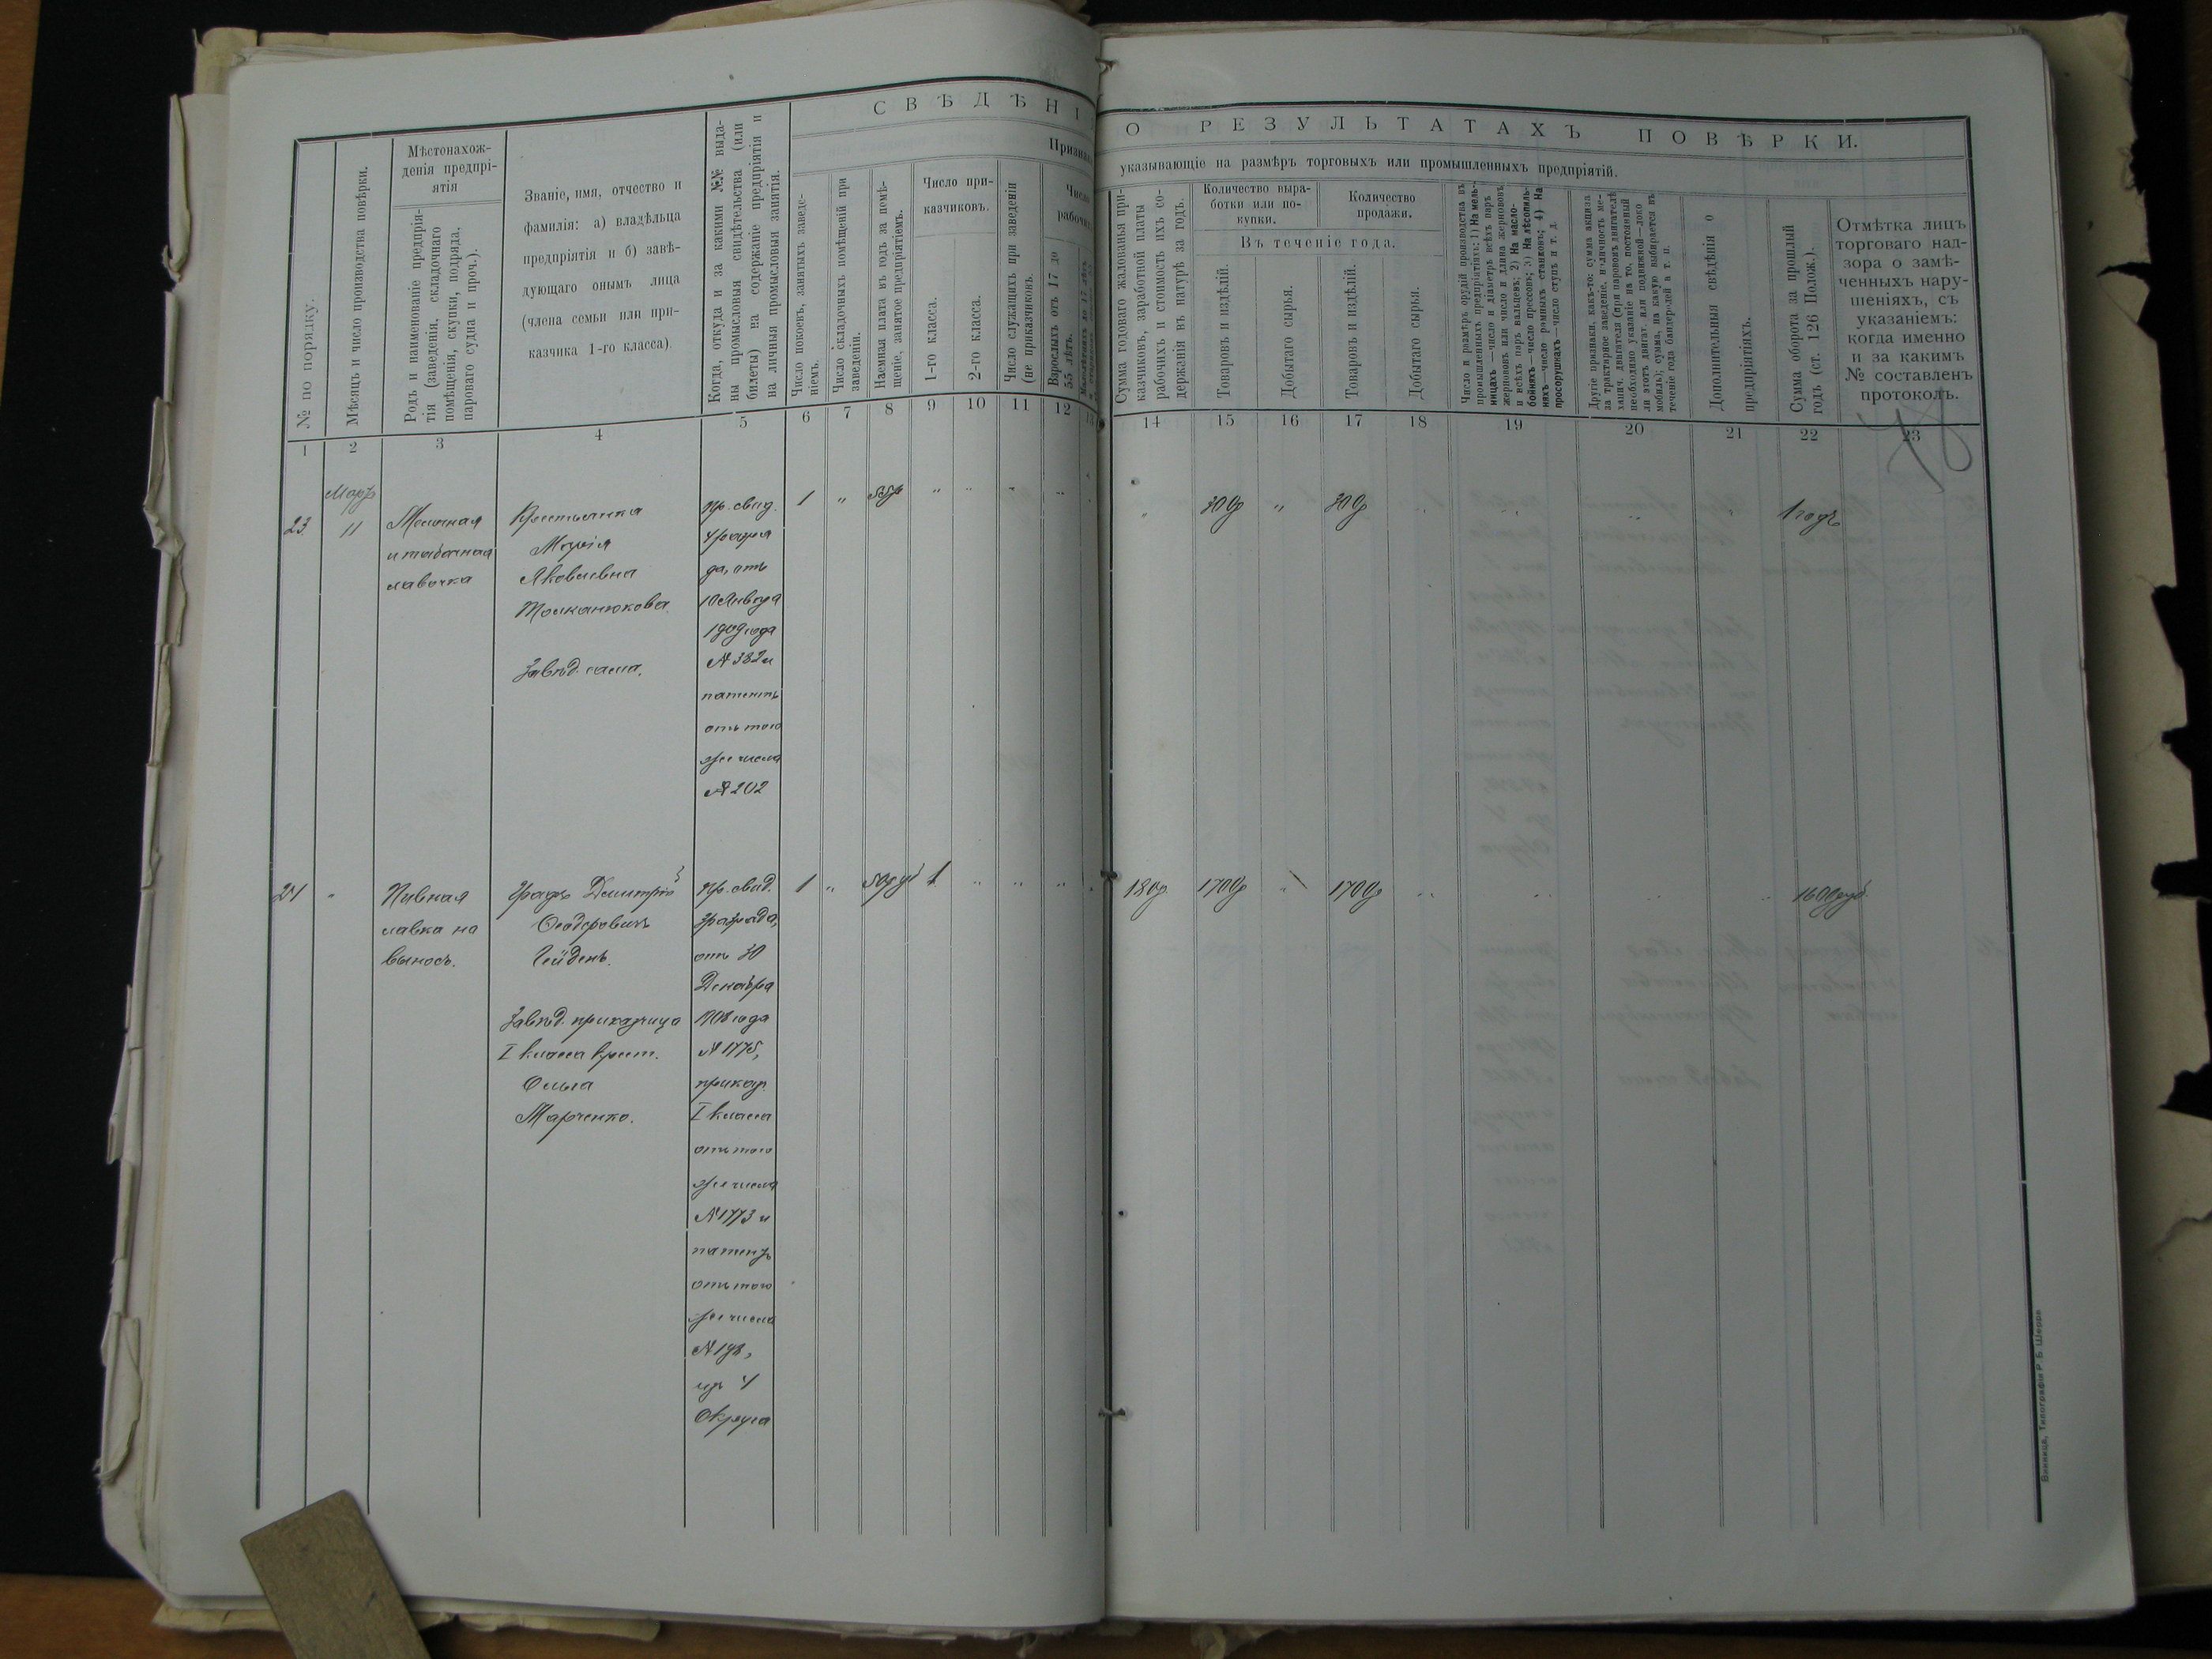 СВѢДѢНІ
О РЕЗУЛЬТАТАХЪ ПОВѢРКИ.
указывающіе на размѣръ торговыхъ или промышленныхъ предпріятій.
№ по порядку.
Мѣсяцъ и число производства повѣрки.
Мѣстонахож-
денія предпрі-
ятія
Родъ и наименованіе предпрія-
тія (заведенія, складочнаго
помѣщенія, скупки, подряда,
пароваго судна и проч.).
Званіе, имя, отчество и
фамилія: а) владѣльца
предпріятія и б) завѣ-
дующаго онымъ лица
(члена семьи или при-
казчика 1-го класса).
Когда, откуда и за какими №№ выда-
ны промысловыя свидѣтельства (или
билеты) на содержаніе предпріятія и
на личныя промысловыя занятія.
Число покоевъ, занятыхъ заведе-
ніемъ.
Число складочныхъ помѣщеній при
заведеніи.
Наемная плата въ годъ за помѣ-
щеніе, занятое предпріятіемъ.
Число при-
казчиковъ.
1-го класса.
2-го класса.
Число служащихъ при заведеніи
(не приказчиковъ.
Число
рабочи
Взрослыхъ отъ 17 до
55 лѣтъ.
Сумма годоваго жалованья при-
казчиковъ, заработной платы
рабочихъ и стоимость ихъ со-
держанія въ натурѣ за годъ.
Количество выра-
ботки или по-
купки.
Количество
продажи.
Въ теченіе года.
Товаровъ и издѣлій.
Добытаго сырья.
Товаровъ и издѣлій.
Добытаго сырья.
Число и размѣръ орудій производства въ
промышленныхъ предпріятіяхъ: 1) На мель-
ницахъ—число и діаметръ всѣхъ паръ
жернововъ или число и длина жернововъ
и всѣхъ паръ вальцевъ; 2) На масло-
бойняхъ—число прессовъ; 3) На лѣсопиль-
няхъ—число рамныхъ станковъ; 4) На
просорушкахъ—число ступъ и т. д.
Другіе признаки, какъ-то: сумма акциза
за трактирное заведеніе, наличность ме-
ханич. двигателя (при паровомъ двигателѣ
необходимо указаніе на то, постоянный
ли этотъ двигат. или подвижной—локо
мобиль); сумма, на какую выбирается въ
теченіе года бандеролей и т. п.
Дополнительныя свѣдѣнія о
предпріятіяхъ.
Сумма оборота за прошлый
годъ (ст. 126 Полож.).
Отмѣтка лицъ
торговаго над-
зора о замѣ-
ченныхъ нару-
шеніяхъ, съ
указаніемъ:
когда именно
и за какимъ
№ составленъ
протоколъ.
1 2 3 4 5 6 7 8 9 10 11 12 13 14 15 16 17 18 19 20 21 22 23
Мартъ
23 11 Мелочная
и табачная
лавочка
Крестьянка
Марія
Яковлевна
Толканюкова.
Завѣд. сама.
Пр. свид.
4 разря
да, отъ
10 Января
1909 года
№ 382 и
патентъ
отъ того
же числа
№ 202
1 " 55р " " " " " 300р " 300р " " " " 1 годъ
24 " Пивная
лавка на
выносъ.
Графъ Дмитрій
Ѳеодоровичъ
Гейденъ.
Завѣд. приказчица
I класса крест.
Ольга
Марченко.
Пр. свид.
3 разряда,
отъ 30
Декабря
1908 года
№ 1775,
приказ.
I класса
отъ того
же числа
№ 1773 и
патентъ
отъ того
же числа
№ 198,
изъ 4
Округа
1 " 50 руб 1 " " " 180р 1700р " 1700р " " " " 1600 руб.
Винница, Типографія Р. Б. Шерра